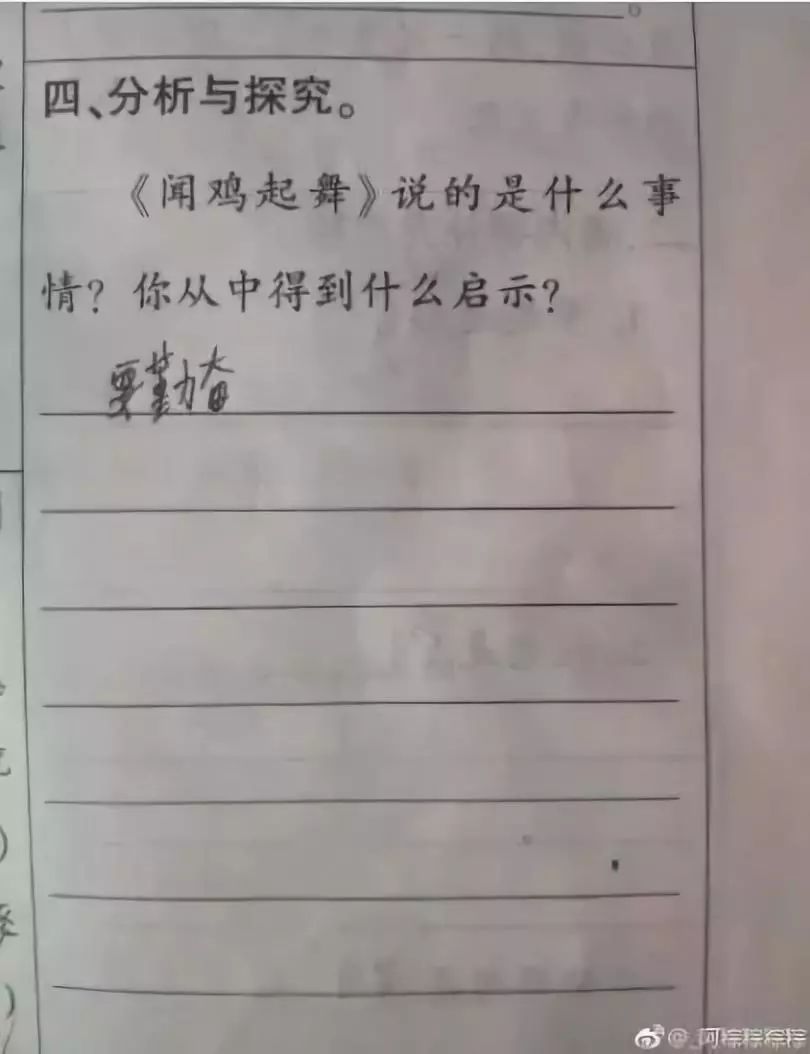 四、分析与探究。
《闻鸡起舞》说的是什么事
情？你从中得到什么启示？
要勤奋